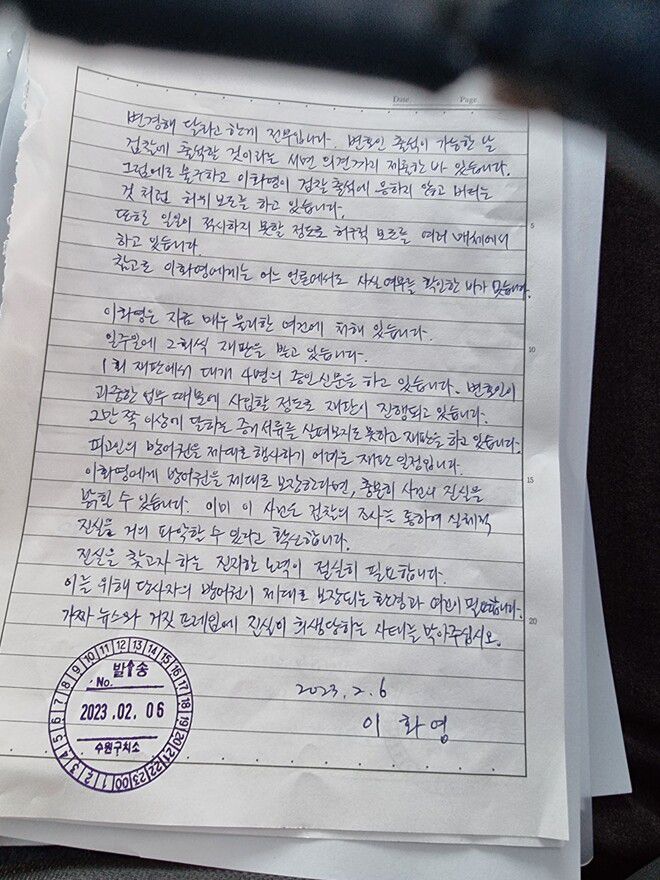 Date. Page.
변경해 달라고 한게 전부입니다. 변호인 출석이 가능한 날
검찰에 출석할 것이라는 서면 의견까지 제출한 바 있습니다.
그럼에도 불구하고 이화영이 검찰 출석에 응하지 않고 버티는
것처럼 허위 보도를 하고 있습니다.
또한 일일이 적시하지 못할 정도로 허구적 보도를 여러 매체에서
하고 있습니다.
참고로 이화영에게는 어느 언론에서도 사실 여부를 확인한 바가 없습니다.
이화영은 지금 매우 불리한 여건에 처해 있습니다.
일주일에 2회씩 재판을 받고 있습니다.
1회 재판에서 대개 4명의 증인신문을 하고 있습니다. 변호인이
과중한 업무 때문에 사임할 정도로 재판이 진행되고 있습니다.
2만 쪽 이상에 달하는 증거서류를 살펴보지도 못하고 재판을 하고 있습니다.
피고인의 방어권을 제대로 행사하기 어려운 재판 일정입니다.
이화영에게 방어권을 제대로 보장한다면, 충분히 사건의 진실을
밝힐 수 있습니다. 이미 이 사건은 검찰의 조사를 통하여 실체적
진실을 거의 파악할 수 있다고 확신합니다.
진실을 찾고자 하는 진지한 노력이 절실히 필요합니다.
이를 위해 당사자의 방어권이 제대로 보장되는 환경과 여건이 필요합니다.
가짜 뉴스와 거짓 프레임에 진실이 희생당하는 사태를 막아주십시오.
2023. 2. 6
이 화 영
5
10
15
20
발송
No.
2023.02.06
수원구치소
1 2 3 4 5 6 7 8 9 10 11 12 13 14 15 16 17 18 19 20 21 22 23 00